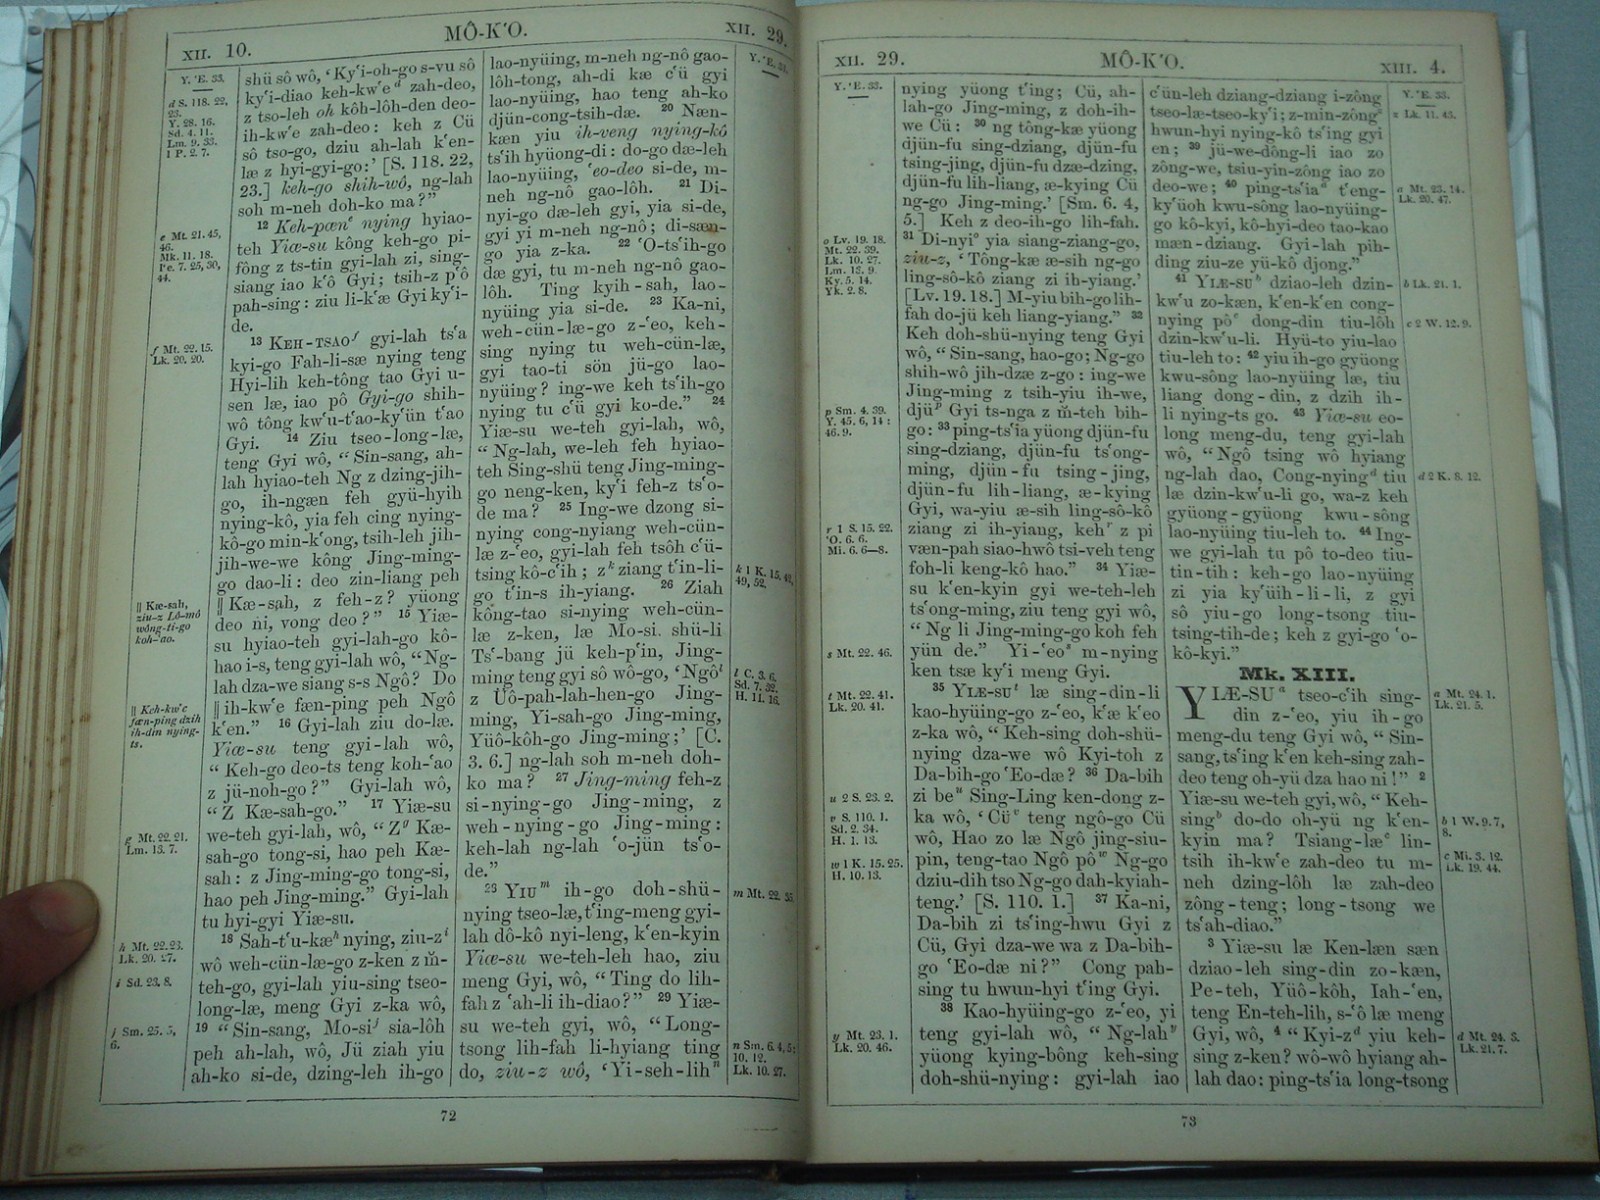 XII. 10.
MÔ-K‘O.
XII. 29.
Y. ‘E. 33.
d S. 118. 22,
23.
Y. 28. 16.
Sd. 4. 11.
Lm. 9. 33.
1 P. 2. 7.
e Mt. 21. 45,
46.
Mk. 11. 18.
44.
f Mt. 22. 15.
Lk. 20. 20.
|| Kæ-sah,
ziu-z Lô-mô
wông-ti-go
koh-‘ao.
|| Keh-kw‘e
fæn-ping dzih
ih-din nying-
ts.
g Mt. 22. 21.
Lm. 13. 7.
h Mt. 22. 23.
Lk. 20. 27.
i Sd. 23. 8.
j Sm. 25. 5,
6.
shü sô wô, ‘Ky‘i-oh-go s-vu sô
ky‘i-diao keh-kw‘e d zah-deo,
z tso-leh oh kôh-lôh-den deo-
ih-kw‘e zah-deo: keh z Cü
sô tso-go, dziu ah-lah k‘en-
læ z hyi-gyi-go:’ [S. 118. 22,
23.] keh-go shih-wô, ng-lah
soh m-neh doh-ko ma?”
12 Keh-pæn e nying hyiao-
teh Yiæ-su kông keh-go pi-
fông z ts-tin gyi-lah zi, sing-
siang iao k‘ô Gyi; tsih-z p‘ô
pah-sing: ziu li-k‘æ Gyi ky‘i-
de.
13 KEH-TSAO f gyi-lah ts‘a
kyi-go Fah-li-sæ nying teng
Hyi-lih keh-tông tao Gyi u-
sen læ, iao pô Gyi-go shih-
wô tông kw‘u-t‘ao-ky‘ün t‘ao
Gyi. 14 Ziu tseo-long-læ,
teng Gyi wô, “Sin-sang, ah-
lah hyiao-teh Ng z dzing-jih-
go, ih-ngæn feh gyü-hyih
nying-kô, yia feh cing nying-
kô-go min-k‘ong, tsih-leh jih-
jih-we-we kông Jing-ming-
go dao-li: deo zin-liang peh
|| Kæ-sah, z feh-z? yüong
deo ni, vong deo?” 15 Yiæ-
su hyiao-teh gyi-lah-go kô-
hao i-s, teng gyi-lah wô, “Ng-
lah dza-we siang s-s Ngô? Do
|| ih-kw‘e fæn-ping peh Ngô
k‘en.” 16 Gyi-lah ziu do-læ.
Yiæ-su teng gyi-lah wô,
“Keh-go deo-ts teng koh-‘ao
z jü-noh-go?” Gyi-lah wô,
“Z Kæ-sah-go.” 17 Yiæ-su
we-teh gyi-lah, wô, “Z g Kæ-
sah-go tong-si, hao peh Kæ-
sah: z Jing-ming-go tong-si,
hao peh Jing-ming.” Gyi-lah
tu hyi-gyi Yiæ-su.
18 Sah-t‘u-kæ h nying, ziu-z i
wô weh-cün-læ-go z-ken z m̆-
teh-go, gyi-lah yiu-sing tseo-
long-læ, meng Gyi z-ka wô,
19 “Sin-sang, Mo-si j sia-lôh
peh ah-lah, wô, Jü ziah yiu
ah-ko si-de, dzing-leh ih-go
lao-nyüing, m-neh ng-nô gao-
lôh-tong, ah-di kæ c‘ü gyi
lao-nyüing, hao teng ah-ko
djün-cong-tsih-dæ. 20 Næn-
kæn yiu ih-veng nying-kô
ts‘ih hyüong-di: do-go dæ-leh
lao-nyüing, ‘eo-deo si-de, m-
neh ng-nô gao-lôh. 21 Di-
nyi-go dæ-leh gyi, yia si-de,
gyi yi m-neh ng-nô; di-sæn-
go yia z-ka. 22 ‘O-ts‘ih-go
dæ gyi, tu m-neh ng-nô gao-
lôh. Ting kyih-sah, lao-
nyüing yia si-de. 23 Ka-ni,
weh-cün-læ-go z-‘eo, keh-
sing nying tu weh-cün-læ,
gyi tao-ti sön jü-go lao-
nyüing? ing-we keh ts‘ih-go
nying tu c‘ü gyi ko-de.” 24
Yiæ-su we-teh gyi-lah, wô,
“Ng-lah, we-leh feh hyiao-
teh Sing-shü teng Jing-ming-
go neng-ken, ky‘i feh-z ts‘o-
de ma? 25 Ing-we dzong si-
nying cong-nyiang weh-cün-
læ z-‘eo, gyi-lah feh tsôh c‘ü-
tsing kô-c‘ih; z k ziang t‘in-li-
go t‘in-s ih-yiang. 26 Ziah
kông-tao si-nying weh-cün-
læ z-ken, læ Mo-si. shü-li
Ts‘-bang jü keh-p‘in, Jing-
ming teng gyi sô wô-go, ‘Ngô l
z Üô-pah-lah-hen-go Jing-
ming, Yi-sah-go Jing-ming,
Yüô-kôh-go Jing-ming;’ [C.
3. 6.] ng-lah soh m-neh doh-
ko ma? 27 Jing-ming feh-z
si-nying-go Jing-ming, z
weh-nying-go Jing-ming:
keh-lah ng-lah ‘o-jün ts‘o-
de.”
28 YIU m ih-go doh-shü-
nying tseo-læ, t‘ing-meng gyi-
lah dô-kô nyi-leng, k‘en-kyin
Yiæ-su we-teh-leh hao, ziu
meng Gyi, wô, “Ting do lih-
fah z ‘ah-li ih-diao?” 29 Yiæ-
su we-teh gyi, wô, “Long-
tsong lih-fah li-hyiang ting
do, ziu-z wô, ‘Yi-seh-lih n
k 1 K. 15. 42,
49, 52.
l C. 3. 6.
Sd. 7. 32.
H. 11. 16.
m Mt. 22. 35.
n Sm. 6. 4, 5;
10. 12.
Lk. 10. 27.
72
XII. 29.
MÔ-K‘O.
XIII. 4.
Y. ‘E. 33.
o Lv. 19. 18.
Mt. 22. 39.
Lk. 10. 27.
Lm. 13. 9.
Ky. 5. 14.
Yk. 2. 8.
p Sm. 4. 39.
Y. 45. 6, 14:
46. 9.
r 1 S. 15. 22.
‘O. 6. 6.
Mi. 6. 6—8.
s Mt. 22. 46.
t Mt. 22. 41.
Lk. 20. 41.
u 2 S. 23. 2.
v S. 110. 1.
Sd. 2. 34.
H. 1. 13.
w 1 K. 15. 25.
H. 10. 13.
y Mt. 23. 1.
Lk. 20. 46.
nying yüong t‘ing; Cü, ah-
lah-go Jing-ming, z doh-ih-
we Cü: 30 ng tông-kæ yüong
djün-fu sing-dziang, djün-fu
tsing-jing, djün-fu dzæ-dzing,
djün-fu lih-liang, æ-kying Cü
ng-go Jing-ming.’ [Sm. 6. 4,
5.] Keh z deo-ih-go lih-fah.
31 Di-nyi o yia siang-ziang-go,
ziu-z, ‘Tông-kæ æ-sih ng-go
ling-sô-kô ziang zi ih-yiang.’
[Lv. 19. 18.] M-yiu bih-go lih-
fah do-jü keh liang-yiang.” 32
Keh doh-shü-nying teng Gyi
wô, “Sin-sang, hao-go; Ng-go
shih-wô jih-dzæ z-go: ing-we
Jing-ming z tsih-yiu ih-we,
djü p Gyi ts-nga z m̆-teh bih-
go: 33 ping-ts‘ia yüong djün-fu
sing-dziang, djün-fu ts‘ong-
ming, djün-fu tsing-jing,
djün-fu lih-liang, æ-kying
Gyi, wa-yiu æ-sih ling-sô-kô
ziang zi ih-yiang, keh r z pi
væn-pah siao-hwô tsi-veh teng
foh-li keng-kô hao.” 34 Yiæ-
su k‘en-kyin gyi we-teh-leh
ts‘ong-ming, ziu teng gyi wô,
“Ng li Jing-ming-go koh feh
yün de.” Yi-‘eo s m-nying
ken tsæ ky‘i meng Gyi.
35 YIÆ-SU t læ sing-din-li
kao-hyüing-go z-‘eo, k‘æ k‘eo
z-ka wô, “Keh-sing doh-shü-
nying dza-we wô Kyi-toh z
Da-bih-go ‘Eo-dæ? 36 Da-bih
zi be u Sing-Ling ken-dong z-
ka wô, ‘Cü v teng ngô-go Cü
wô, Hao zo læ Ngô jing-siu-
pin, teng-tao Ngô pô w Ng-go
dziu-dih tso Ng-go dah-kyiah-
teng.’ [S. 110. 1.] 37 Ka-ni,
Da-bih zi ts‘ing-hwu Gyi z
Cü, Gyi dza-we wa z Da-bih-
go ‘Eo-dæ ni?” Cong pah-
sing tu hwun-hyi t‘ing Gyi.
38 Kao-hyüing-go z-‘eo, yi
teng gyi-lah wô, “Ng-lah y
yüong kying-bông keh-sing
doh-shü-nying: gyi-lah iao
c‘ün-leh dziang-dziang i-zông
tseo-læ-tseo-ky‘i; z-min-zông z
hwun-hyi nying-kô ts‘ing gyi
en; 39 jü-we-dông-li iao zo
zông-we, tsiu-yin-zông iao zo
deo-we; 40 ping-ts‘ia a t‘eng-
ky‘üoh kwu-sông lao-nyüing-
go kô-kyi, kô-hyi-deo tao-kao
mæn-dziang. Gyi-lah pih-
ding ziu-ze yü-kô djong.”
41 YIÆ-SU b dziao-leh dzin-
kw‘u zo-kæn, k‘en-k‘en cong-
nying pô c dong-din tiu-lôh
dzin-kw‘u-li. Hyü-to yiu-lao
tiu-leh to: 42 yiu ih-go gyüong
kwu-sông lao-nyüing læ, tiu
liang dong-din, z dzih ih-
li nying-ts go. 43 Yiæ-su eo-
long meng-du, teng gyi-lah
wô, “Ngô tsing wô hyiang
ng-lah dao, Cong-nying d tiu
læ dzin-kw‘u-li go, wa-z keh
gyüong-gyüong kwu-sông
lao-nyüing tiu-leh to. 44 Ing-
we gyi-lah tu pô to-deo tiu-
tin-tih: keh-go lao-nyüing
zi yia ky‘üih-li-li, z gyi
sô yiu-go long-tsong tiu-
tsing-tih-de; keh z gyi-go ‘o-
kô-kyi.”
Mk. XIII.
YIÆ-SU a tseo-c‘ih sing-
din z-‘eo, yiu ih-go
meng-du teng Gyi wô, “Sin-
sang, ts‘ing k‘en keh-sing zah-
deo teng oh-yü dza hao ni!” 2
Yiæ-su we-teh gyi, wô, “Keh-
sing b do-do oh-yü ng k‘en-
kyin ma? Tsiang-læ c lin-
tsih ih-kw‘e zah-deo tu m-
neh dzing-lôh læ zah-deo
zông-teng; long-tsong we
ts‘ah-diao.”
3 Yiæ-su læ Ken-læn sæn
dziao-leh sing-din zo-kæn,
Pe-teh, Yüô-kôh, Iah-‘en,
teng En-teh-lih, s-‘ô læ meng
Gyi, wô, 4 “Kyi-z d yiu keh-
sing z-ken? wô-wô hyiang ah-
lah dao: ping-ts‘ia long-tsong
Y. ‘E. 33.
z Lk. 11. 43.
a Mt. 23. 14.
Lk. 20. 47.
b Lk. 21. 1.
c 2 W. 12. 9.
d 2 K. 8. 12.
a Mt. 24. 1.
Lk. 21. 5.
b 1 W. 9. 7,
8.
c Mi. 3. 12.
Lk. 19. 44.
d Mt. 24. 3.
Lk. 21. 7.
73